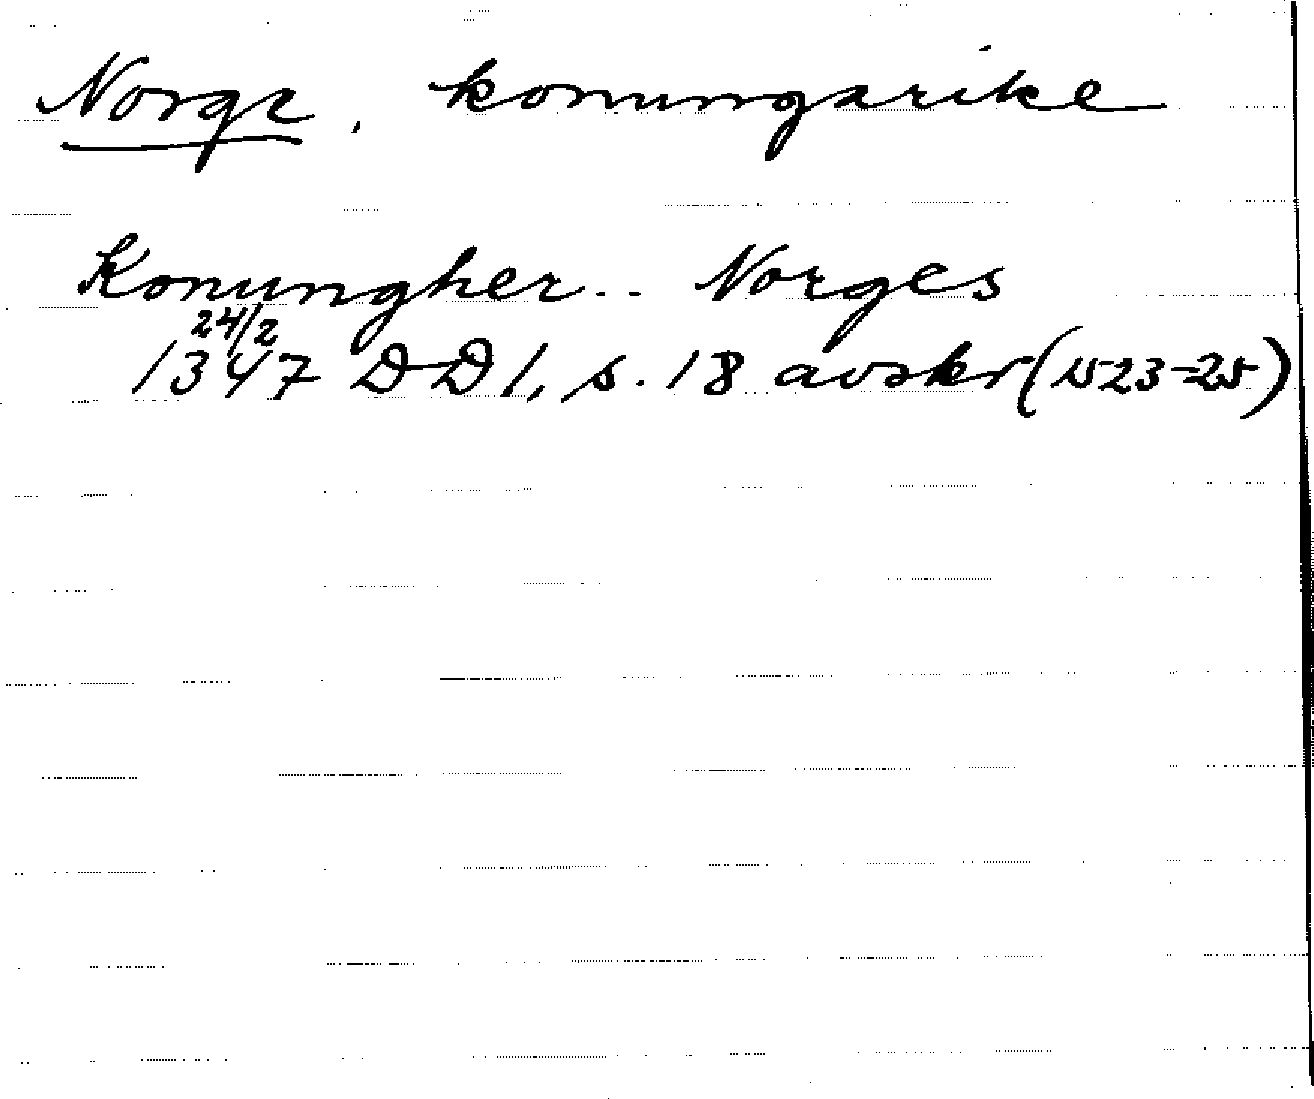 Norge, konungarike
Konungher.. Norges
24/2
1347 DD 1, s. 18 avskr (1523-25)